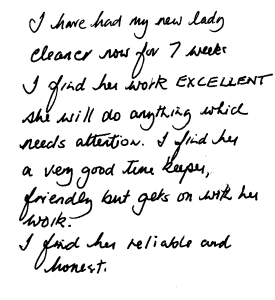 I have had my new lady
cleaner now for 7 weeks
I find her work EXCELLENT
she will do anything which
needs attention. I find her
a very good time keeper,
friendly but gets on with her
work.
I find her reliable and
honest.